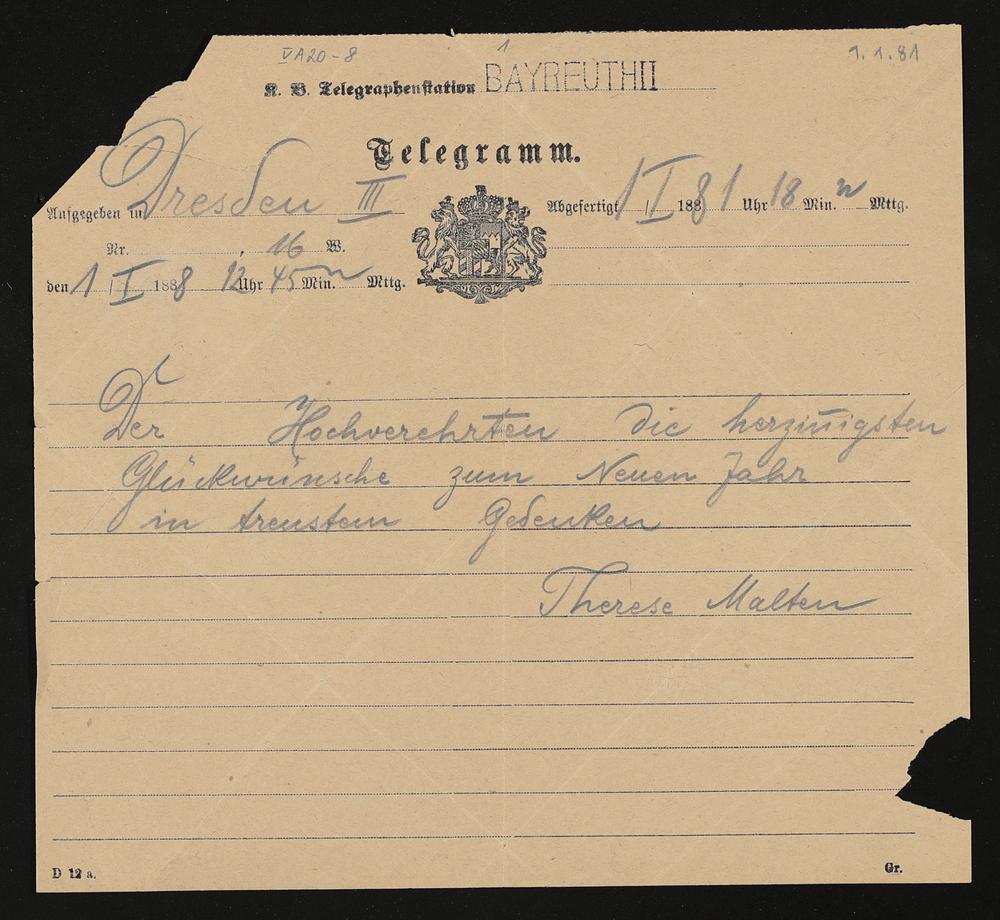 VA20-8
1
1. 1. 81
K. B. Telegraphenstation BAYREUTH II
Telegramm.
Aufgegeben in Dresden III
Abgefertigt 1/I 1888 1 Uhr 18 Min. n Mttg.
Nr. 16 W.
den 1/I 1888 12 Uhr 45 Min. n Mttg.
Der Hochverehrten die herzin̄igsten
Glückwünsche zum Neuen Jahr
in treustem Gedenken
Therese Malten
D 12 a.
Gr.